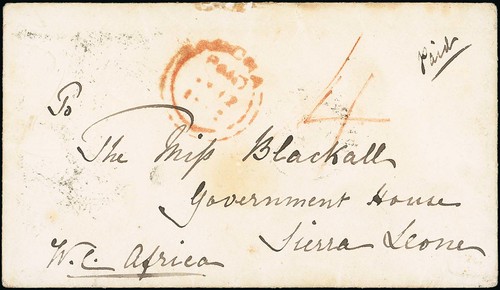 Paid
PAID
4
To
The Miss Blackall
Government House
Sierra Leone
W.C. Africa